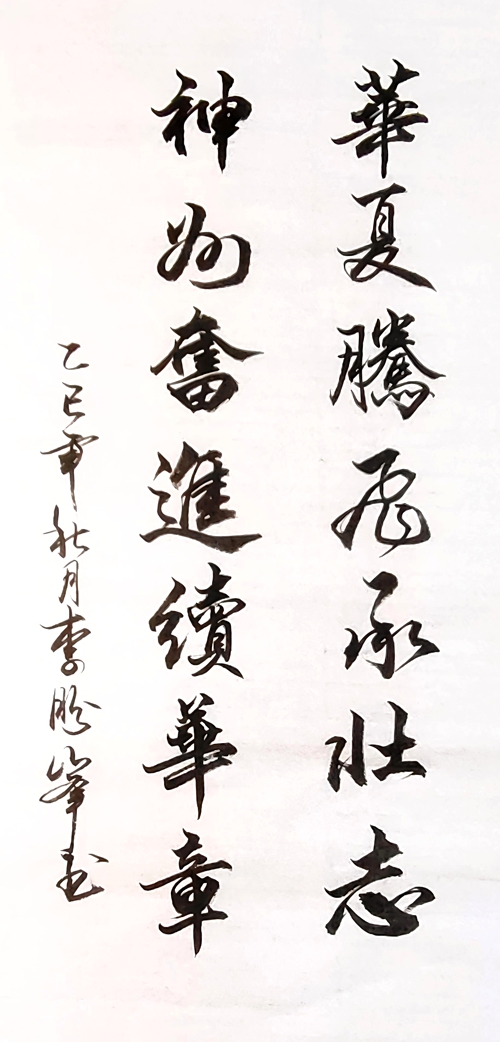 華夏騰飛承壯志
神州奮進續華章
乙巳年秋月李峰书